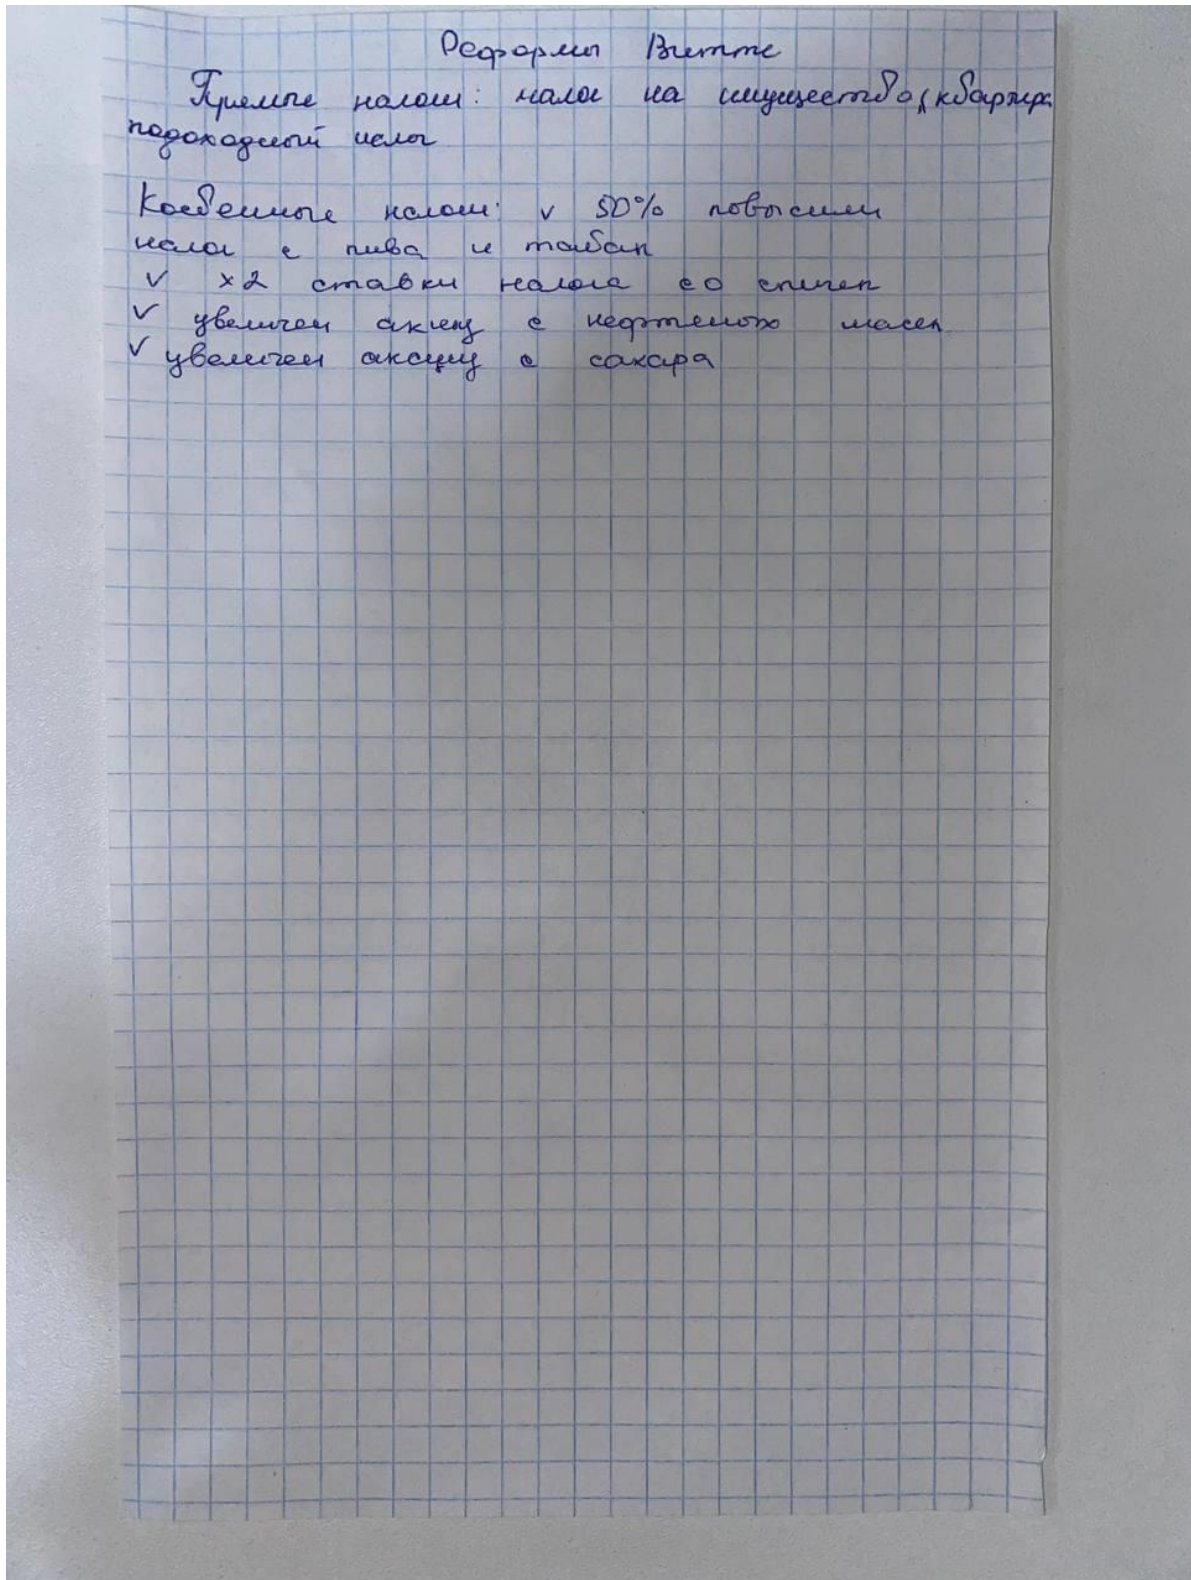 Реформы Витте
Прямые налоги: налог на имущество, квартира
подоходный налог
Косвенные налоги: v 50% повысили
налог с пива и табак
v x2 ставки налога со спичек
v увеличен акциз с нефтяного масел
v увеличен акциз с сахара